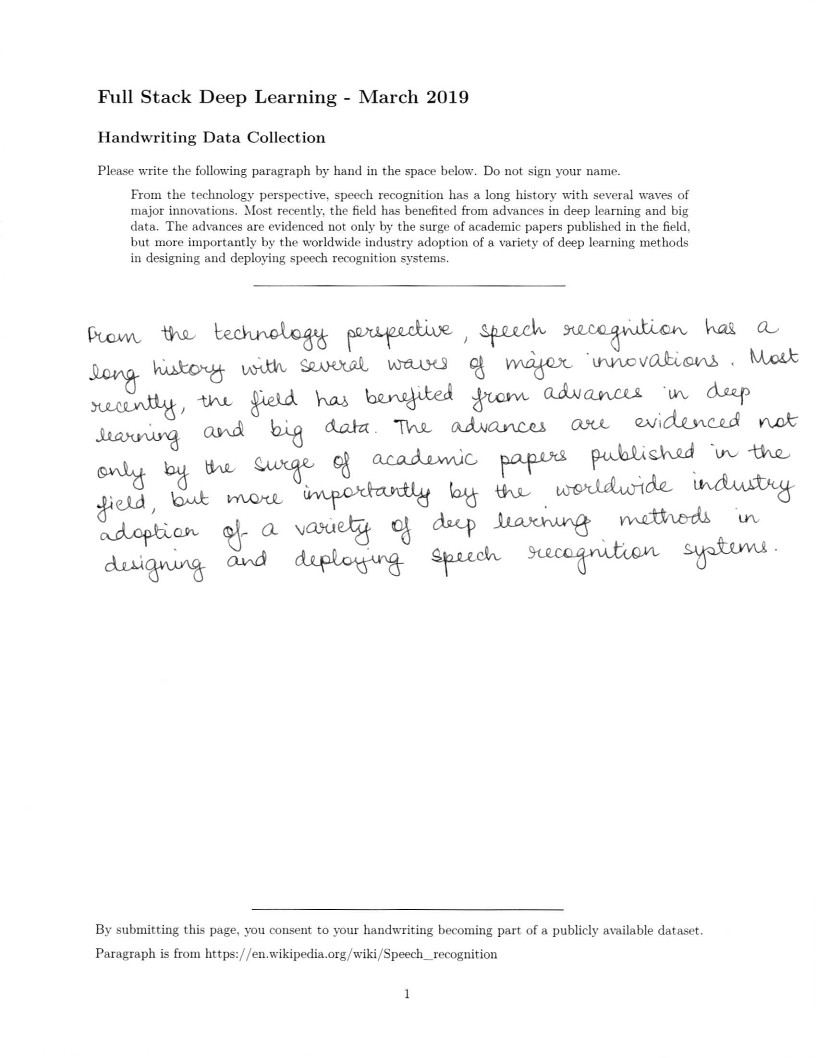 Full Stack Deep Learning - March 2019
Handwriting Data Collection
Please write the following paragraph by hand in the space below. Do not sign your name.
From the technology perspective, speech recognition has a long history with several waves of
major innovations. Most recently, the field has benefited from advances in deep learning and big
data. The advances are evidenced not only by the surge of academic papers published in the field,
but more importantly by the worldwide industry adoption of a variety of deep learning methods
in designing and deploying speech recognition systems.
From the technology perspective, speech recognition has a
long history with several waves of major innovations. Most
recently, the field has benefited from advances in deep
learning and big data. The advances are evidenced not
only by the surge of academic papers published in the
field, but more importantly by the worldwide industry
adoption of a variety of deep learning methods in
designing and deploying speech recognition systems.
By submitting this page, you consent to your handwriting becoming part of a publicly available dataset.
Paragraph is from https://en.wikipedia.org/wiki/Speech_recognition
1